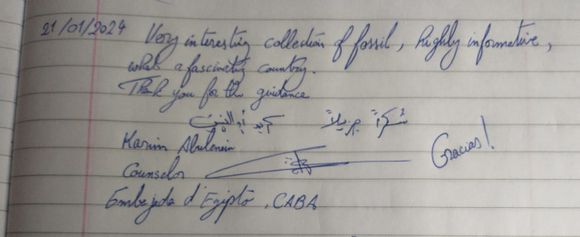 21/01/2024 Very interesting collection of fossil, highly informative,
what a fascinating country.
Thank you for the guidance
شكراً جزيلاً
Karim Abulenein
Counselor Gracias!
Embajada d'Egipto, CABA